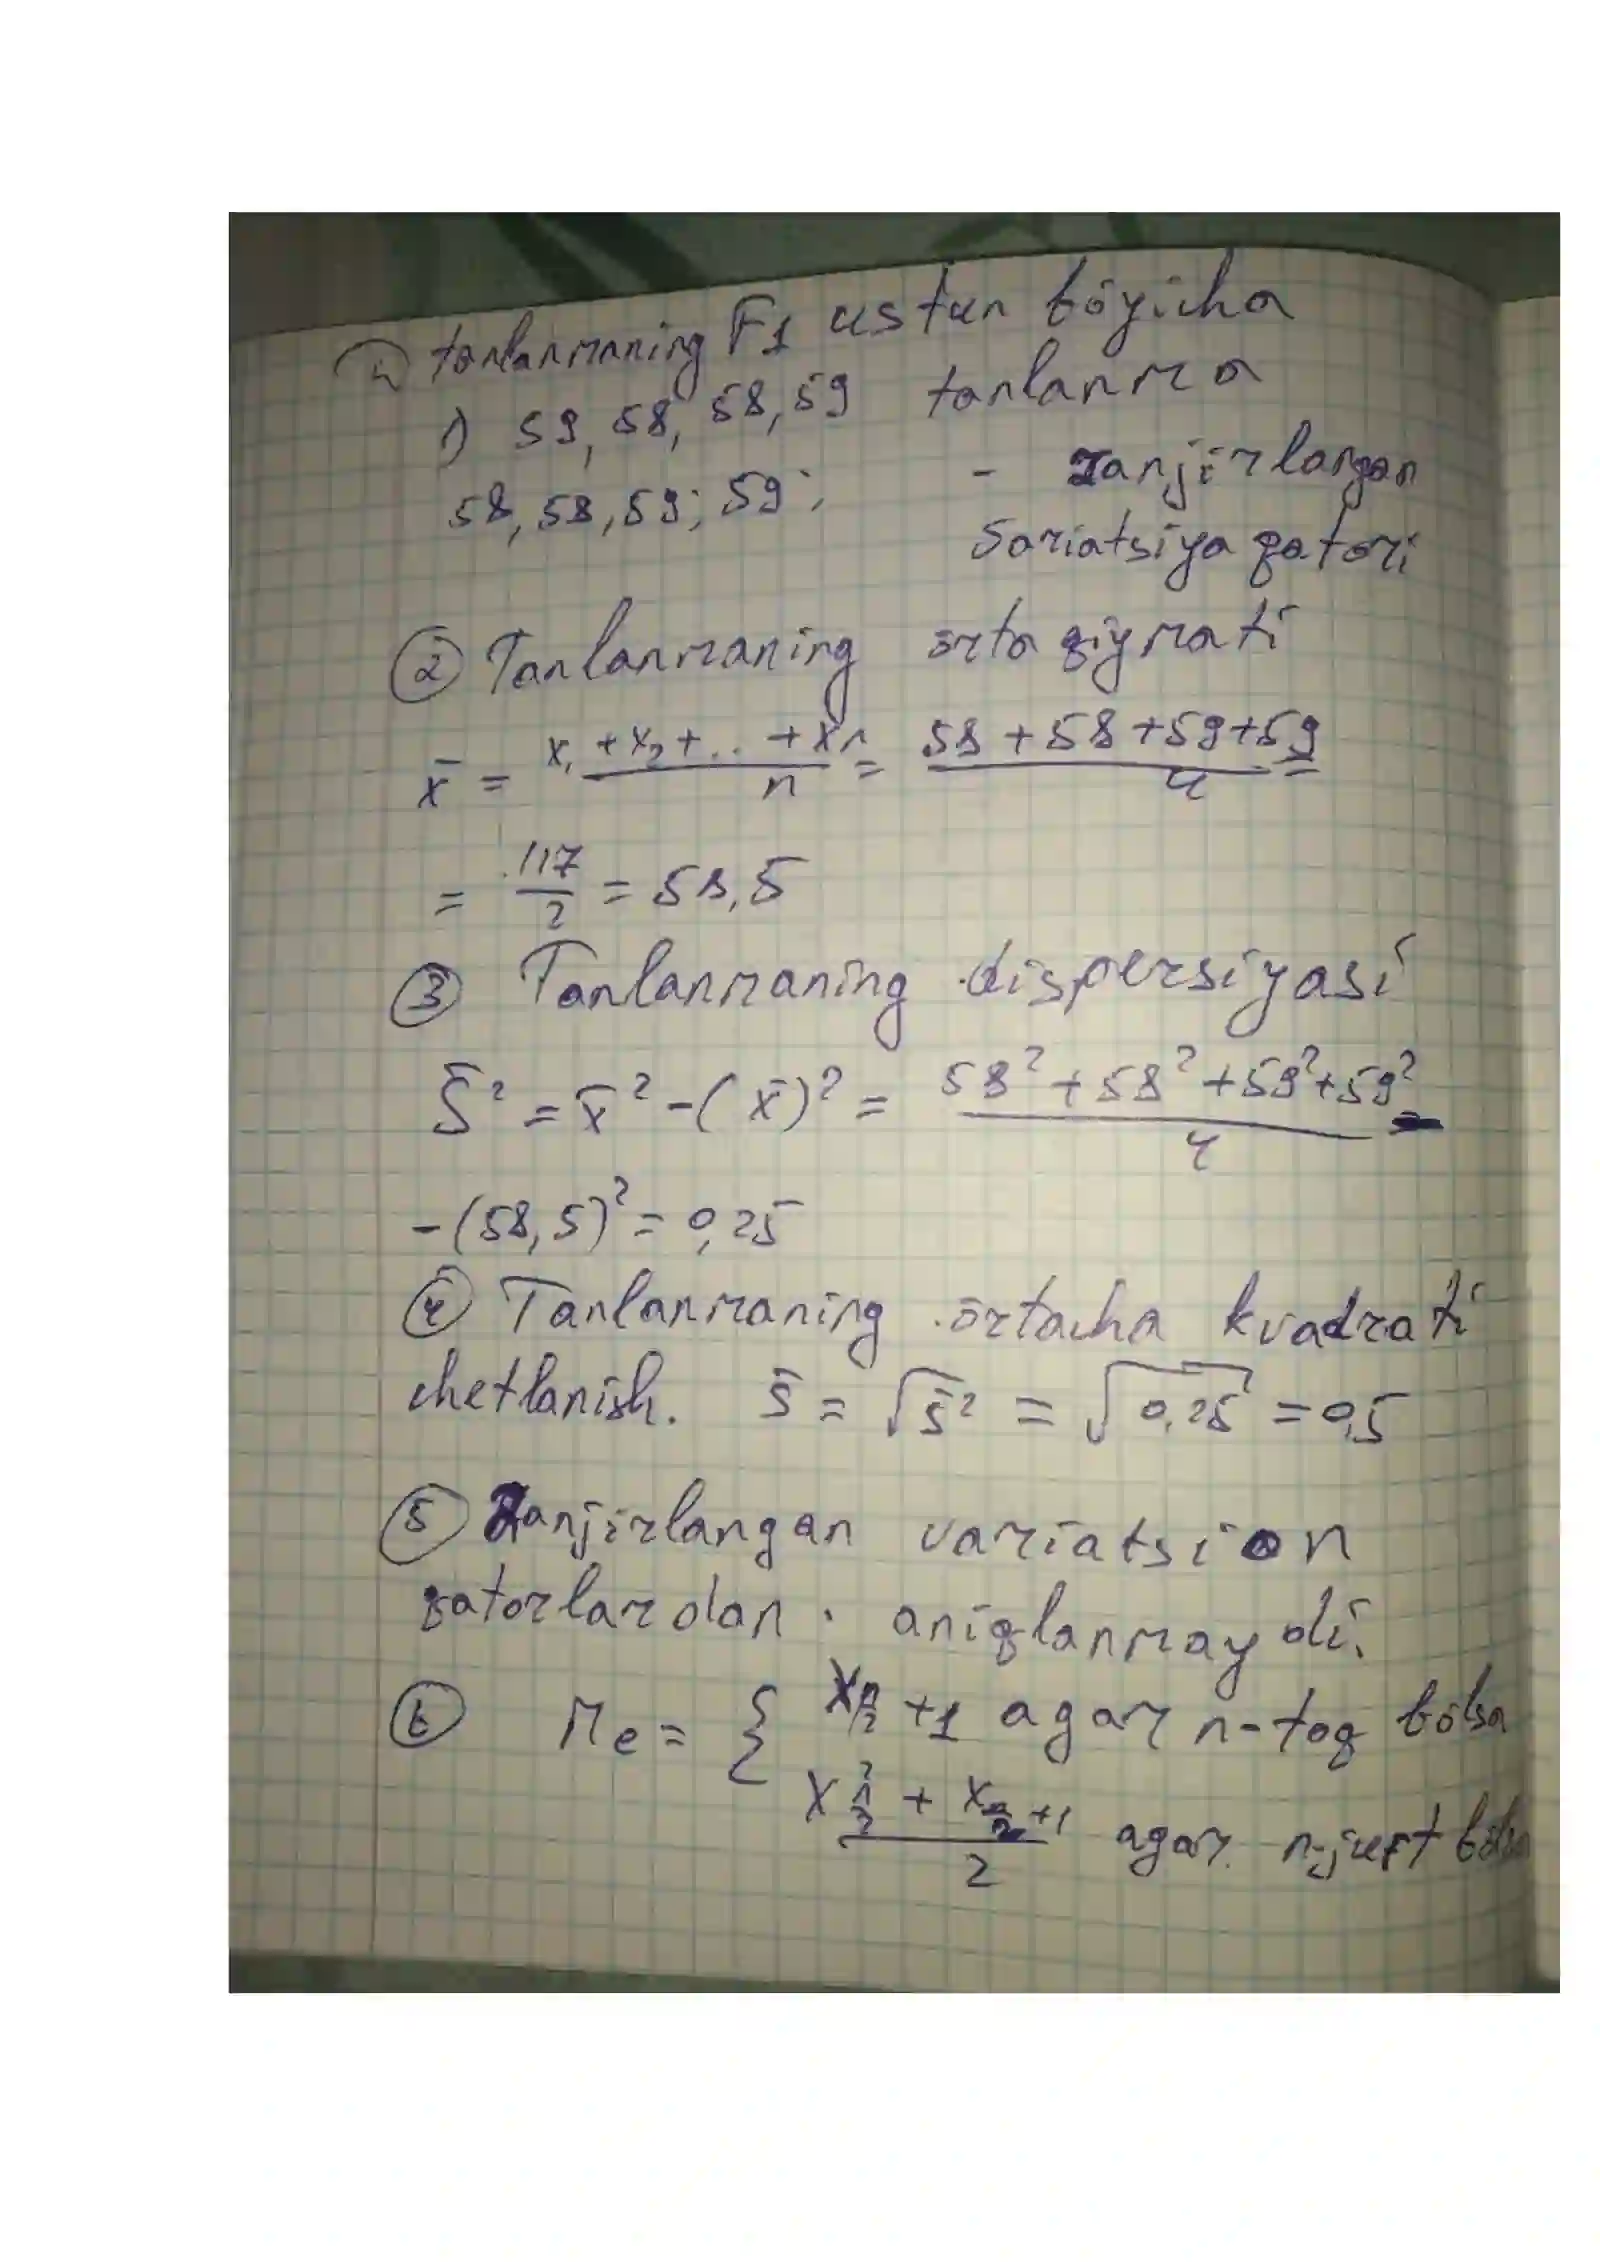 4) tanlanmaning F1 ustun bo̅yicha
1) 59, 58, 58, 59 tanlanma
58, 58, 59; 59; - Ranjirlangan
Variatsiya qatori
② Tanlanmaning o̅rta qiymati
x̄ = (x₁ + x₂ + .. + xₙ)/n = (58 + 58 + 59 + 59)/4 =
= 117/2 = 58,5
③ Tanlanmaning dispersiyasi
S̄² = x̄² - (x̄)² = (58² + 58² + 59² + 59²)/4 -
- (58,5)² = 0,25
④ Tanlanmaning o̅rtacha kvadrati
chetlanish. S̄ = √S̄² = √0,25 = 0,5
⑤ Ranjirlangan variatsion
qatorlardan aniqlanmaydi.
⑥ Me = { x n/2 + 1 agar n-toq bo̅lsa
(x n/2 + x n/2 + 1)/2 agar n-juft bo̅lsa